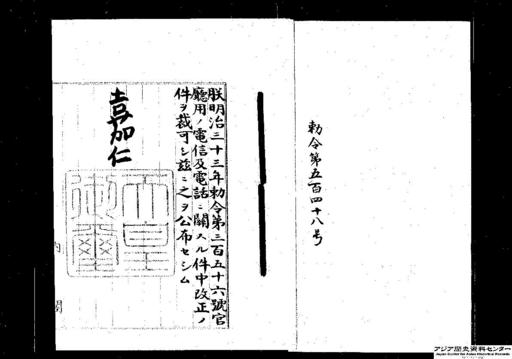 勅令第五百四十八号
朕明治三十三年勅令第三百五十六號官
廳用ノ電信及電話ニ關スル件中改正ノ
件ヲ裁可シ茲ニ之ヲ公布セシム
嘉仁
天皇
御璽
内閣
アジア歴史資料センター
Japan Center for Asian Historical Records